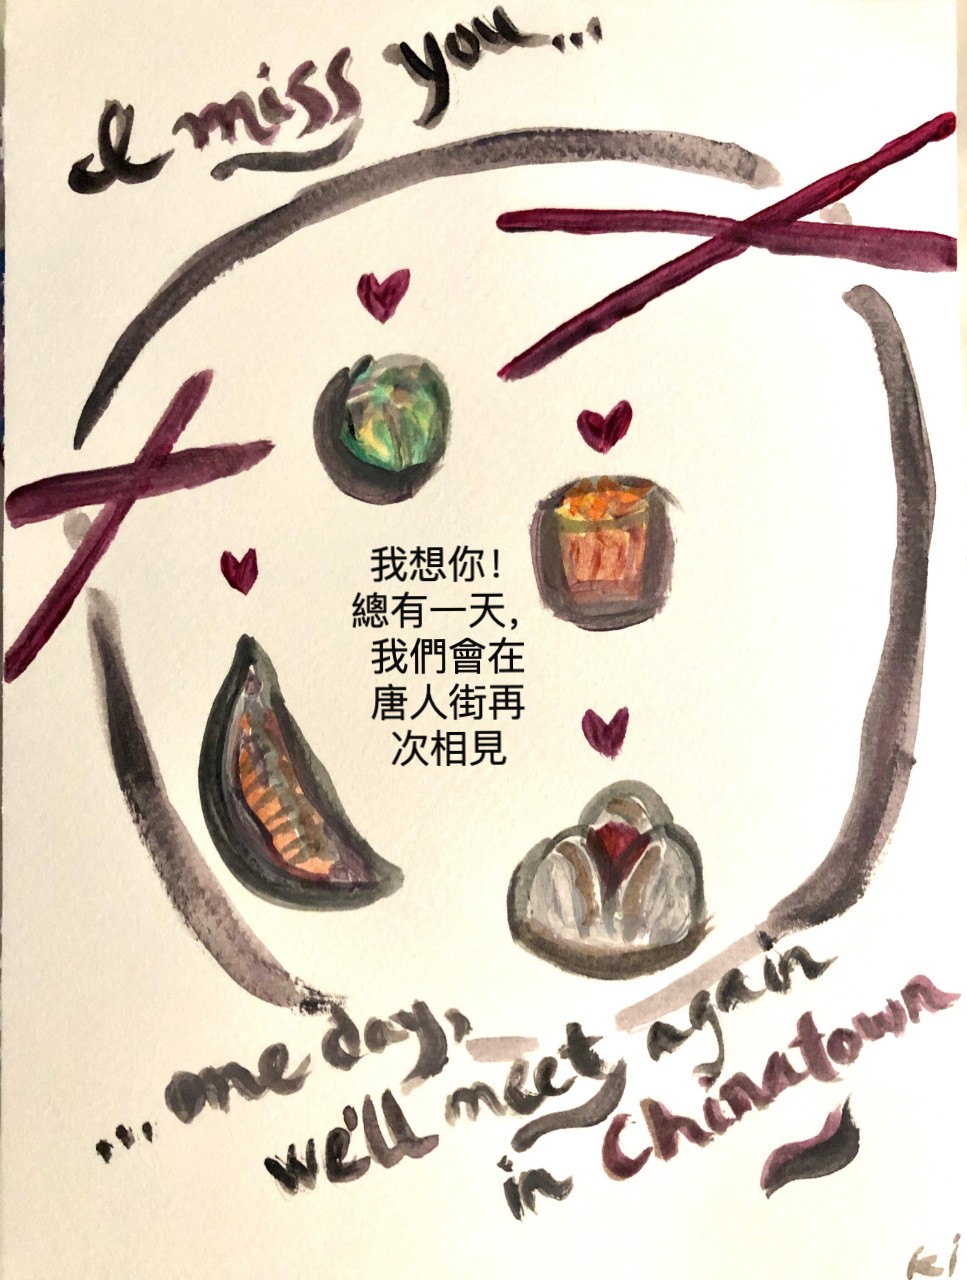 I miss you...
我想你!
總有一天,
我們會在
唐人街再
次相見
...one day,
we'll meet again
in Chinatown
ki